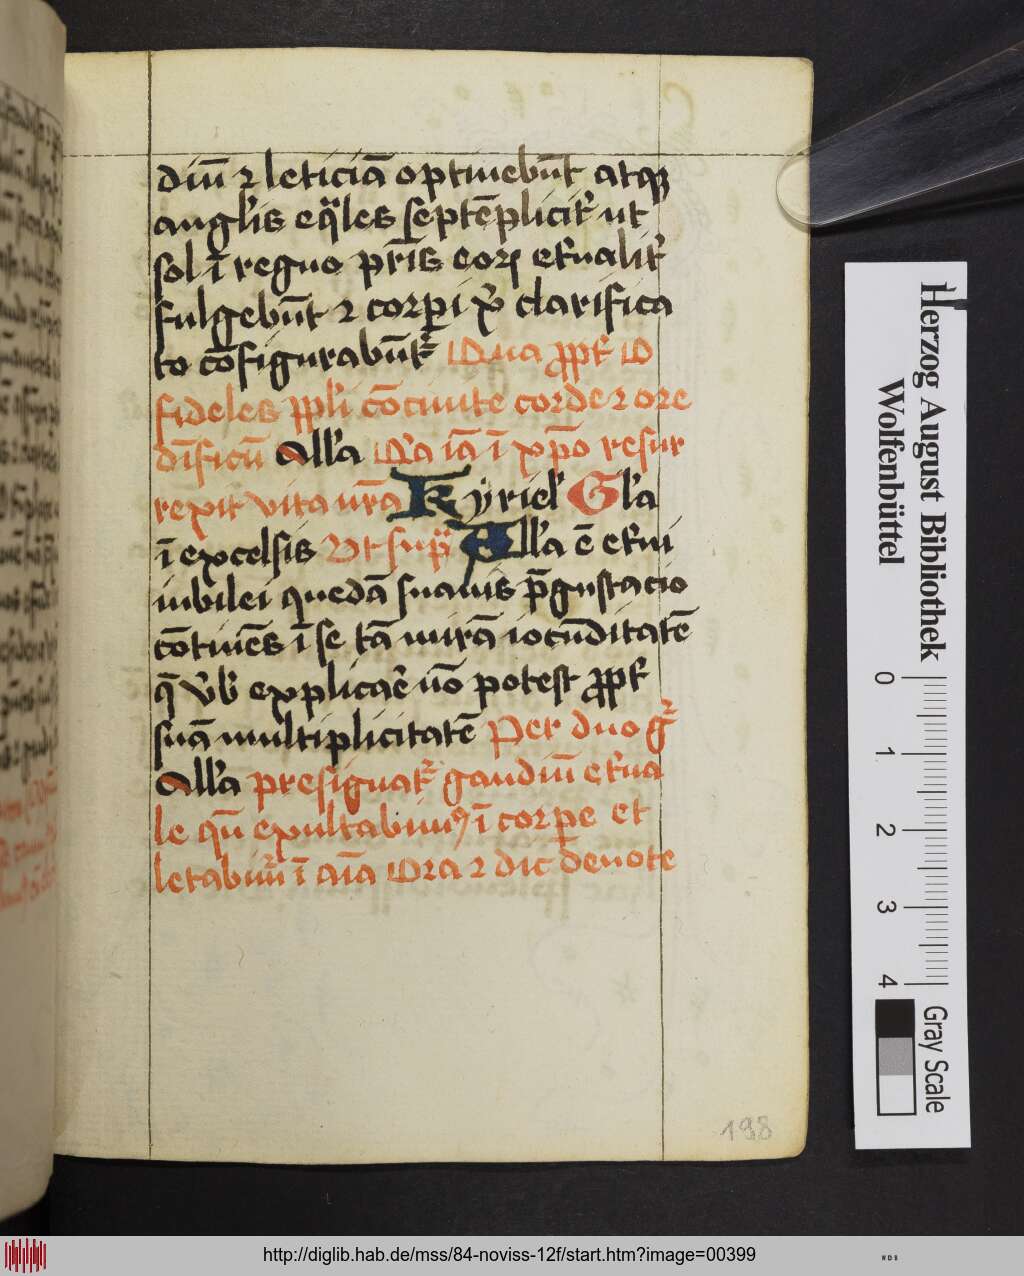 diu̅ ⁊ leticia̅ optinebu̅t atqꝫ
angl'is eq̈les septe̅plicit' ut
sol i̅ regno pr̅is eoꝝ et'nalit'
fulgebu̅t ⁊ corꝑi xp̅i clarifica
to co̅figurabu̅t᷑ Qua ꝓpt' O
fideles ppl'i co̅cinite corde ⁊ ore
di̅ficu̅ All'a Q'a ia̅ i̅ xp̅o resur
rexit vita nr̅a Kyriel' Gl'a
i̅ excelsis Ut sup̃ All'a e̅ et'ni
iubilei queda̅ suauis p̅gustacio
co̅tine̅s i̅ se ta̅ mira̅ iocu̅ditate̅
q̅ v'b' explicar̅e no̅ potest ꝓpt'
sua̅ multiplicitate̅ Per duo g̊
All'a presignat᷑ gaudiu̅ et'na
le qn̅ exultabimꝰ i̅ corꝑe et
letabim᷑ i̅ ai̅a Ora ⁊ dic deuote
198
Herzog August Bibliothek
Wolfenbüttel
0 1 2 3 4
Gray Scale
http://diglib.hab.de/mss/84-noviss-12f/start.htm?image=00399